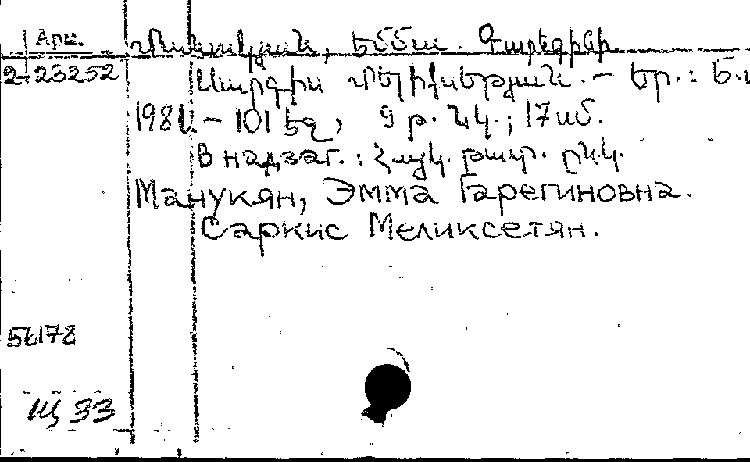 Арм.
Մանուկյան, Էմմա Գարեգինի
2-23252
Սարգիս Մելիքսեթյան. – Եր.: Б.и
1981. – 101 էջ, 9 թ. նկ.; 17 սմ.
В надзаг.: Հայկ. թատր. ընկ.
Манукян, Эмма Гарегиновна.
Саркис Меликсетян.
178
Щ 33